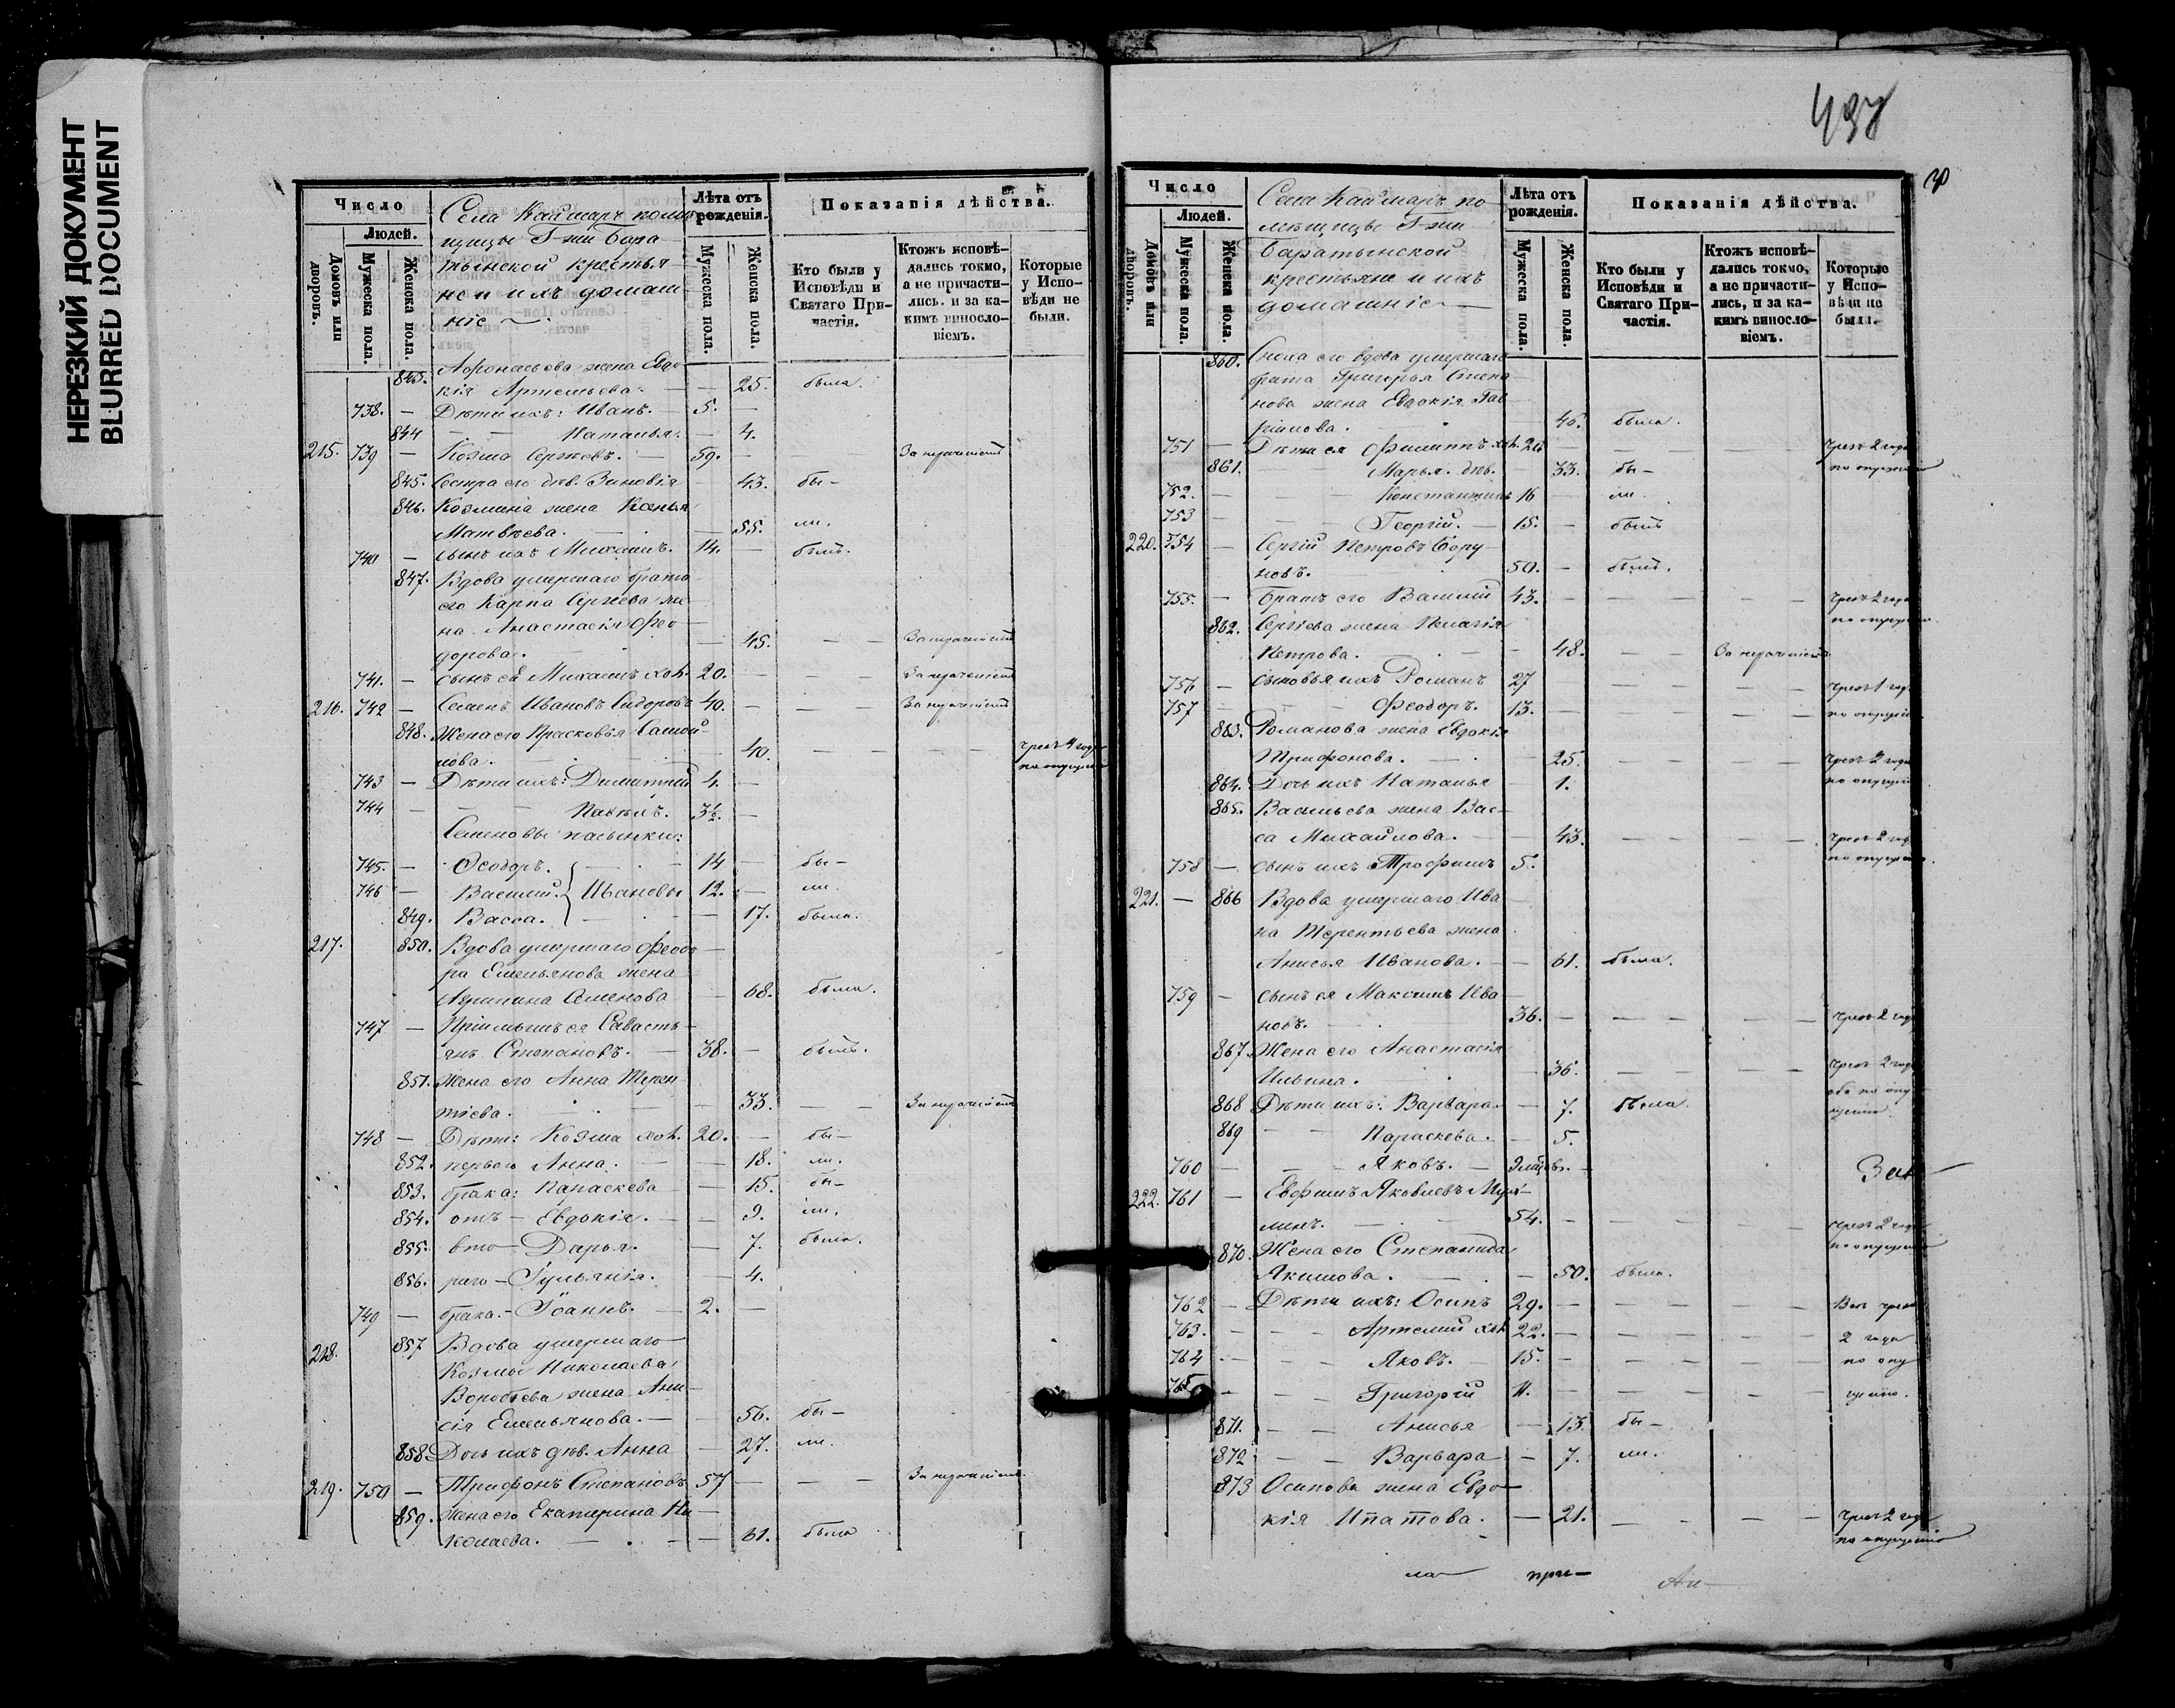 НЕРЕЗКИЙ ДОКУМЕНТ
BLURRED DOCUMENT
Число
Людей.
Домовъ или дворовъ.
Мужеска пола.
Женска пола.
Села Каймаръ помѣ-
щицы Г-жи Бара-
тынской крестья-
не и ихъ домаш-
ніе
Лѣта отъ рожденія.
Мужеска пола.
Женска пола.
Показанія дѣйства.
Кто были у Исповѣди и Святаго Причастія.
Ктожъ исповѣдались токмо, а не причастились. и за какимъ винословіемъ.
Которые у Исповѣди не были.
843. Афонасьева жена Евдо-
кія Артемьева. — — 25. была.
738. — Дѣти ихъ: Иванъ. — 5. —
844 — — Наталья. — 4.
215. 739 — Козма Сергѣевъ. — 59. —
845. Сестра его дѣв. Зиновія — 43. бы-
846. Козмина жена Ксенья
Матвѣева. — — 55. ли.
740 — Сынъ ихъ Михаилъ. 14. — былъ.
847. Вдова умершаго брата
его Карпа Сергѣева же-
на Анастасія Фео-
дорова. — — 45. — —
741. — Сынъ ея Михаилъ хол. 20. —
216. 742 — Семенъ Ивановъ Сидоровъ 40. — — —
848. Жена его Прасковья Самой-
лова. — 40. — — — — чрезъ 4 года
по опущенію
743 — Дѣти ихъ: Димитрій 4. —
744 — — — Павелъ. 3½. —
Семеновы пасынки:
745. — Ѳеодоръ. — 14 — бы-
746 — Василий. Ивановы 12. — ли.
849. Васса. — — 17. была.
217. 850. Вдова умершаго Феодо-
ра Емельянова жена
Агрипина Семенова — 68. была.
747 — Пріимышъ ея Савасть-
янъ Степановъ. — 38. — былъ.
851. Жена его Анна Терен-
тіева. — — 33. — —
748 — Дѣти: Козма хол. 20. — бы-
852. перваго Анна. — — 18. ли.
853. брака: Параскева — 15. бы-
854. отъ — Евдокія. — — 9. ли.
855. вто- Дарья. — 7. была.
856. раго — Іульянія. — 4.
749 — брака. — Іоаннъ. — 2. —
218. 857 Вдова умершаго
Козмы Николаева
Воробьева жена Ани-
сія Емельянова. — — 56. бы-
858 Дочь ихъ дѣв. Анна — 27. ли.
219. 750 — Трифонъ Степановъ 57 — — —
859. Жена его Екатерина Ни-
колаева. — — 61. была
437
Число
Людей.
Домовъ или дворовъ.
Мужеска пола.
Женска пола.
Села Каймаръ по-
мѣщицы Г-жи
Баратынской
крестьяне и ихъ
домашніе
Лѣта отъ рожденія.
Мужеска пола.
Женска пола.
Показанія дѣйства.
Кто были у Исповѣди и Святаго Причастія.
Ктожъ исповѣдались токмо, а не причастились, и за какимъ винословіемъ.
Которые у Исповѣди не были.
860. Сноха его вдова умершаго
брата Григорья Степа-
нова жена Евдокія Гав-
рилова. — 46. была.
751 — Дѣти ея Филиппъ хол. — — — — чрезъ 2 года
по опущенію
861. — — Марья. дѣв. — 33. бы-
752. — — — Константинъ 16 — ли.
753 — — — Георгій. — 15. — былъ
220. 754 — Сергій Петровъ
новъ. 50. — былъ.
755. — Братъ его Василий 43. — — — — — чрезъ 2 года
по опущенію
862. Сергіева жена Пелагія
Петрова. — — 48. — —
756 — Сыновья ихъ Романъ 27 — — — чрезъ 1 годъ
757 — — — Феодоръ. 13. — — — по опущенію
863. Романова жена Евдокія
Трифонова. — — 25. — — — — чрезъ 2 года
по опущенію
864. Дочь ихъ Наталья — 1.
865. Васильева жена Вас-
са Михайлова. — — 43. — — — — чрезъ 2 года
по опущенію
758 — Сынъ ихъ Трофимъ 5.
221. — 866 Вдова умершаго Ива-
на Терентьева жена
Анисья Иванова. — — 61. была.
759 — Сынъ ея Максимъ Ива-
новъ. — 36. — — — — — чрезъ 2 года
867. Жена его Анастасія
Ильина. — 36. — — — — чрезъ 2 года
оба по опу-
щенію.
868 Дѣти ихъ: Варвара — 7. была.
869 — — Параскева. — 5.
760 — — — Яковъ. —
222. 761 — Евфимъ Яковлевъ
линъ. — — 54. — — — — — чрезъ 2 года
по опущенію
870. Жена его Степанида
Якимова. — — 50. была.
762 — Дѣти ихъ: Осипъ 29. — — — — — Всѣ чрезъ
763. — — — Артемий хол 22. — — — — — 2 года
764 — — — Яковъ. — 15. — — — — — по опу-
765 — — — Григорій 11. — — — — — щенію.
871. — — Анисья — 13. бы-
872 — — Варвара — 7. ли.
873 Осипова жена Евдо-
кія Ипатова. — — 21. — — — — чрезъ 2 года
по опущенію